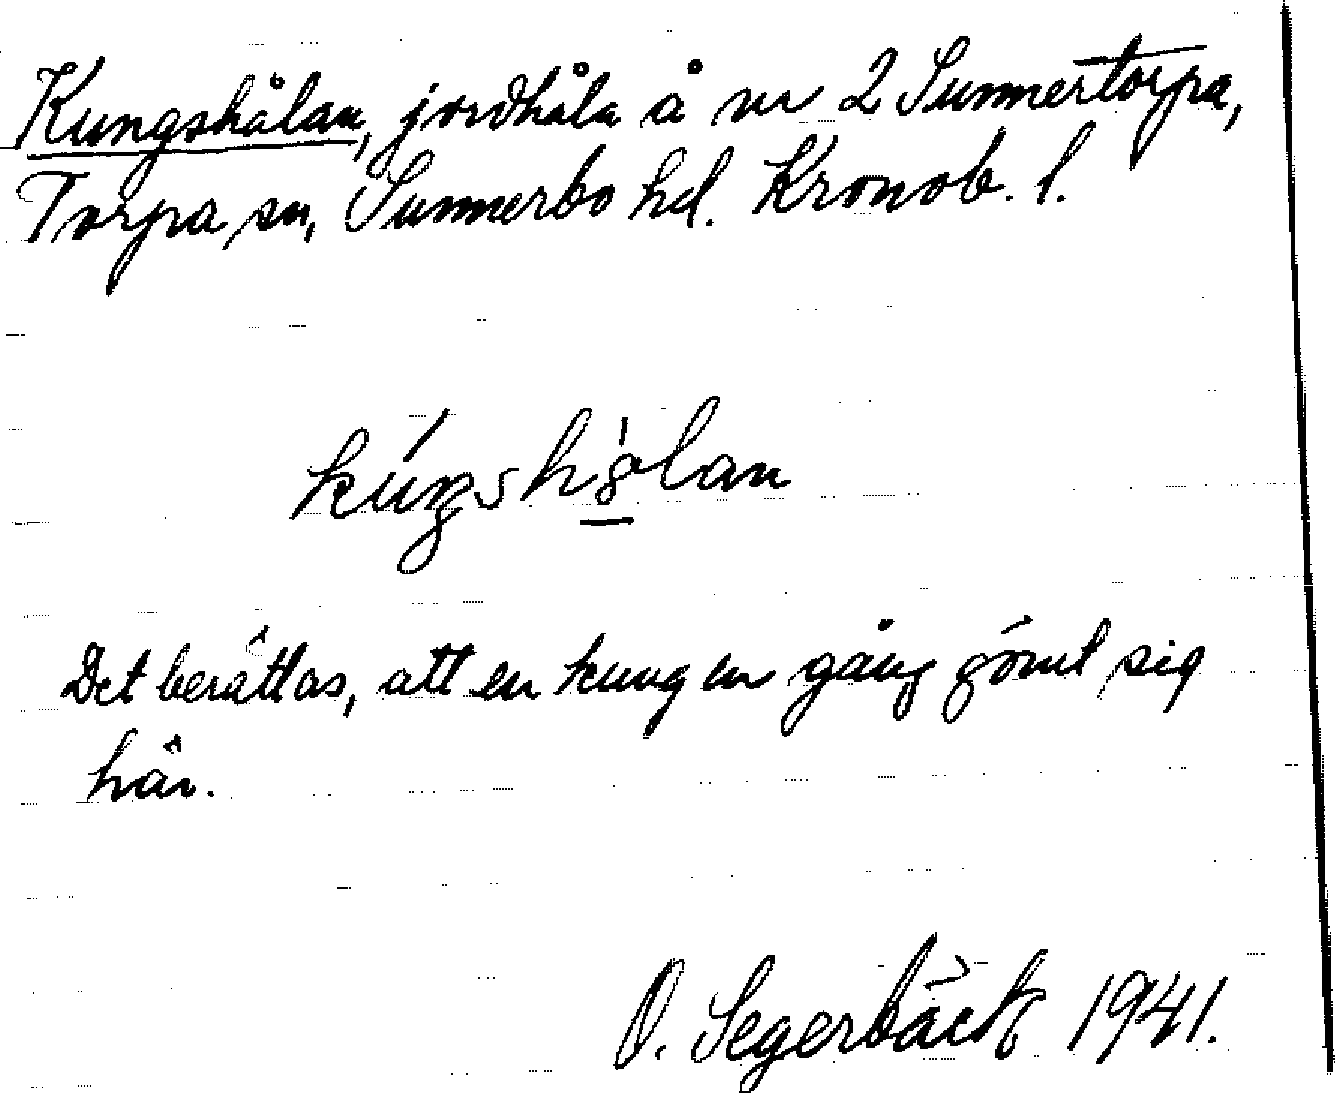 Kungshålan, jordhåla å nr 2 Sunnertorpa,
Torpa sn, Sunnerbo hd. Kronob. l.
Det berättas, att en kung en gång gömt sig
här.
O. Segerbäck 1941.